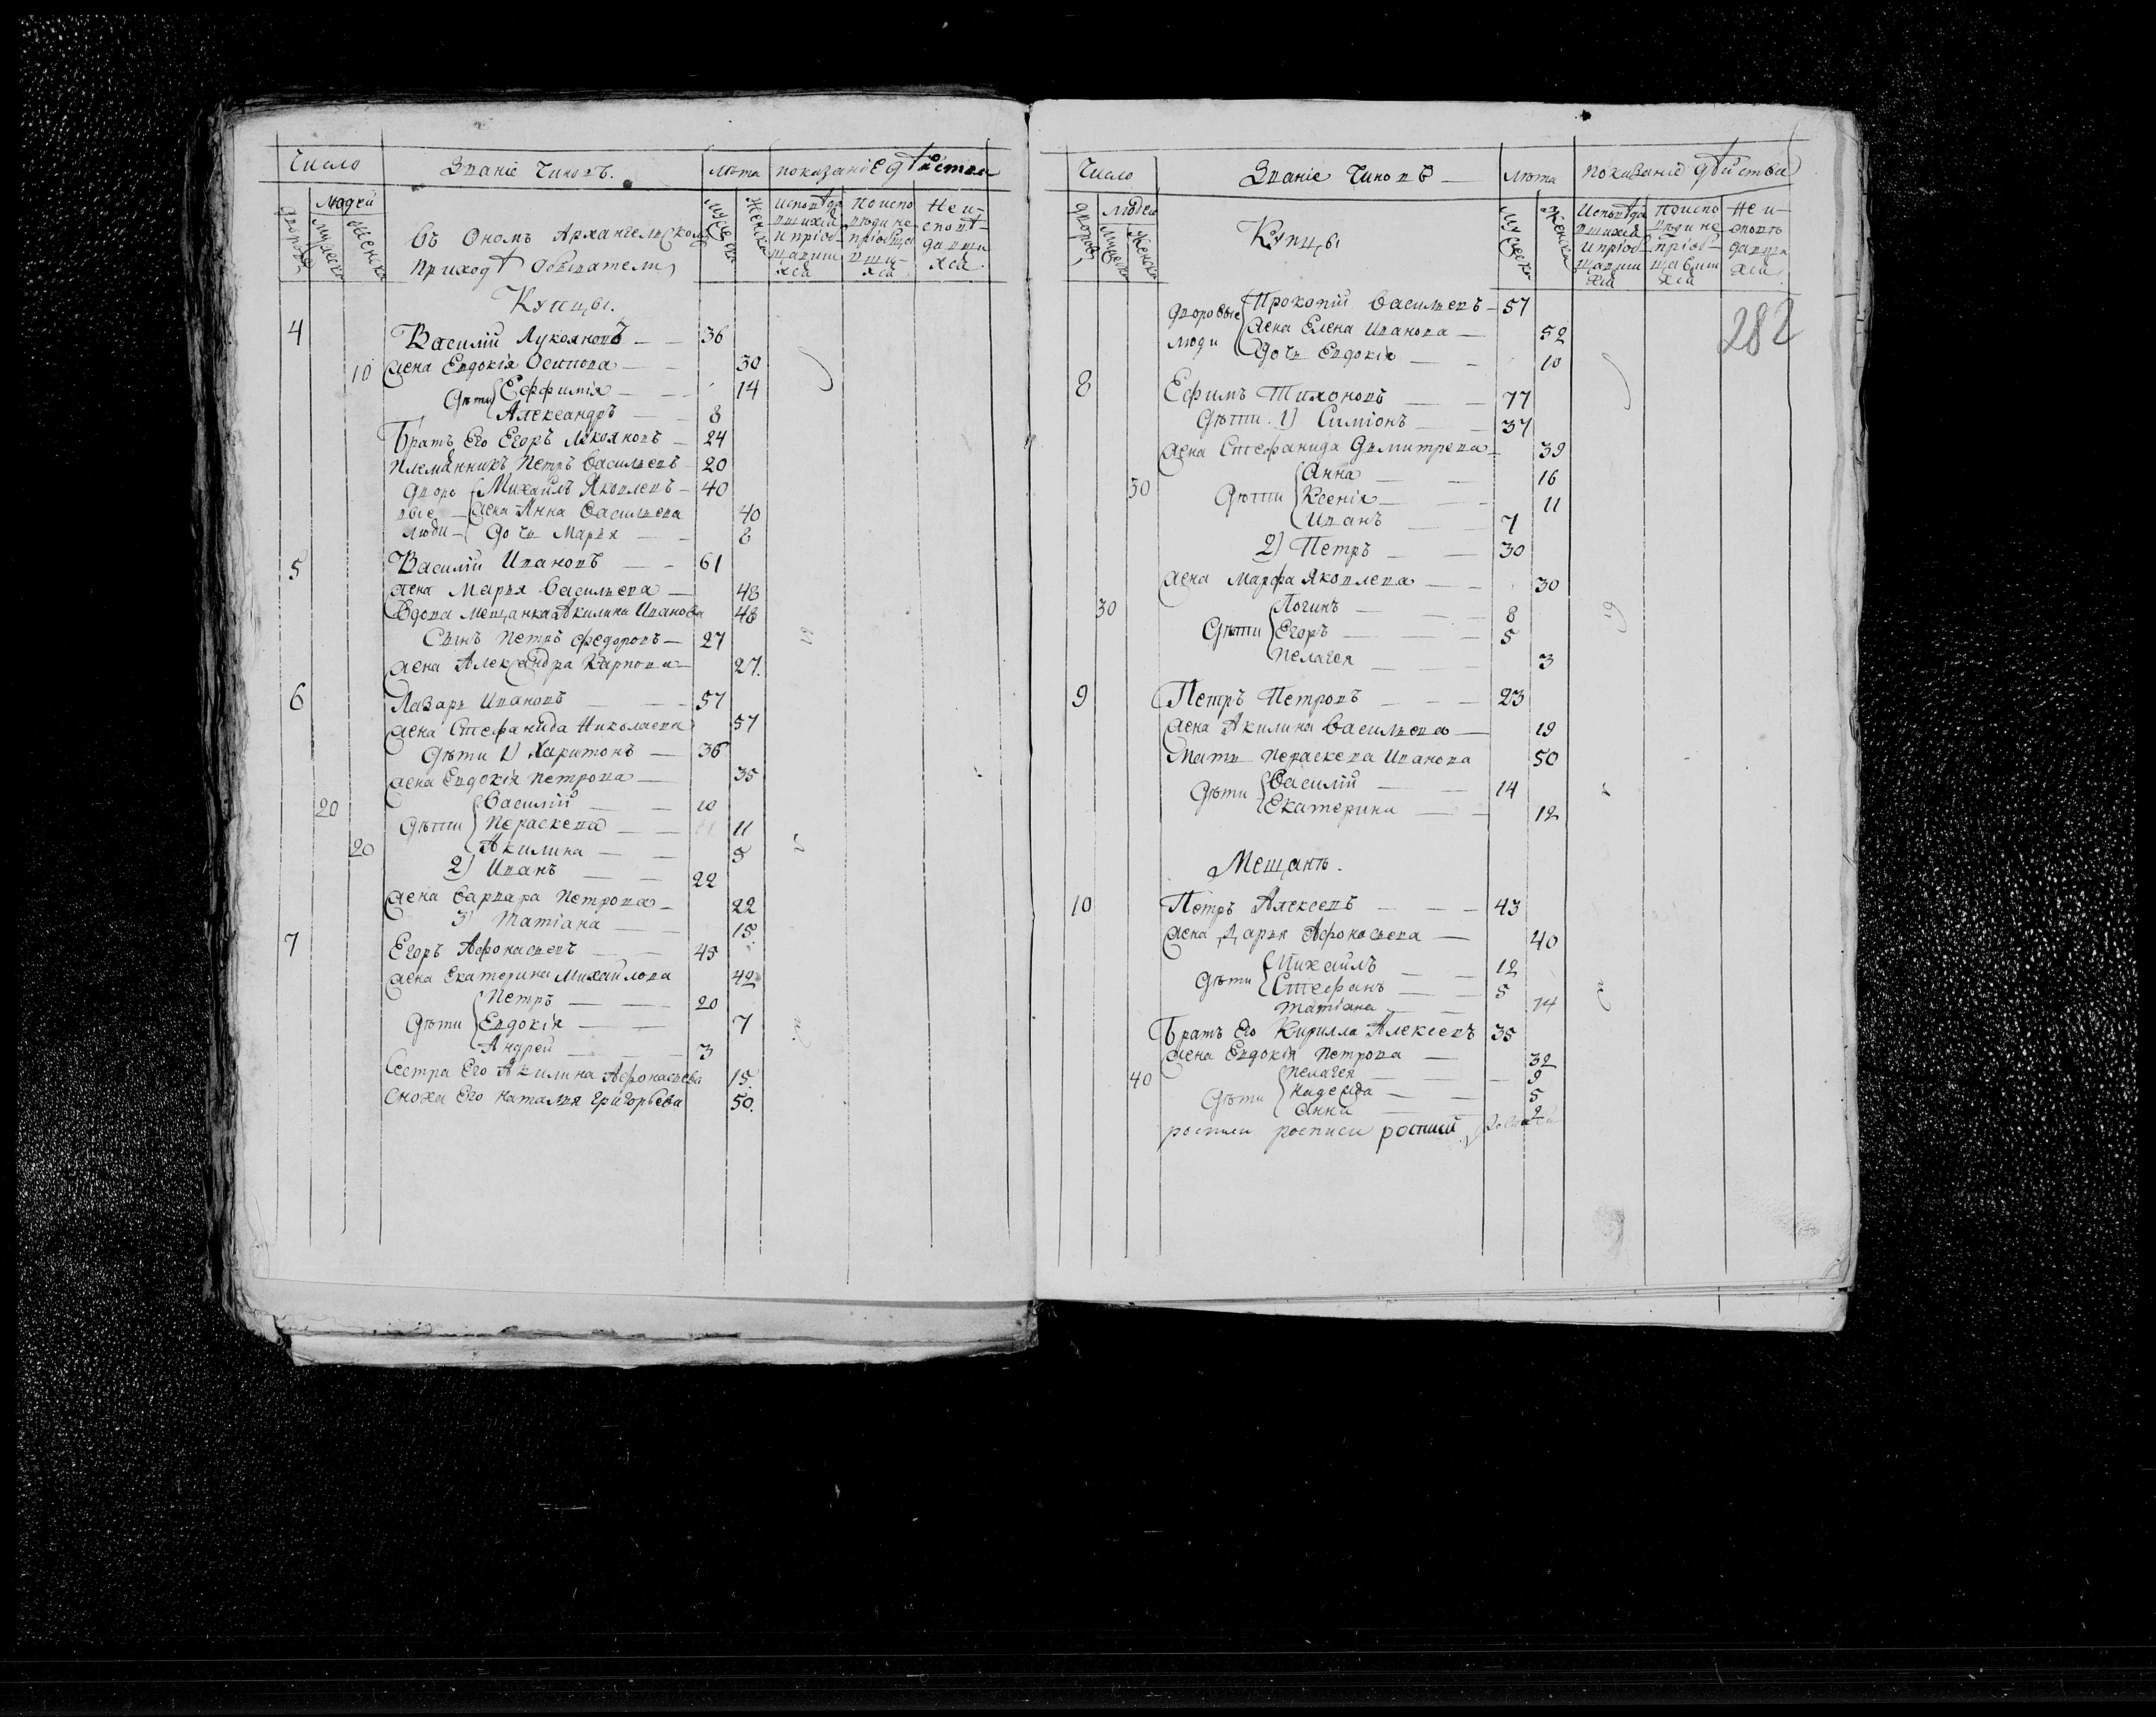 Число Званіе Чиновъ. Лѣта показаніе дѣйства
Людей
дворовъ мужеска женска мужеска женска
Исповѣдавшихся и пріобщавшихся
По исповѣди не пріобщавшихся
Не исповѣдавшихся
въ Ономъ Архангельскомъ
приходѣ обыватели
Купцы.
4 Василій Лукояновъ — 36
10 жена Евдокія Осипова — 30
дѣти Евфимія — 14
Александръ — 8
Братъ Его Егоръ Лукояновъ — 24
племянникъ Петръ Васильевъ 20
дворовые люди Михаилъ Яковлевъ — 40
жена Анна Васильева 40
дочь Марья — 8
5 Василій Ивановъ — 61
жена Марья Васильева — 48
вдова мещанка Акилина Иванова 48
Сынъ Петръ Федоровъ — 27
жена Александра Карпова — 27.
6 Лазарь Ивановъ — 57
жена Стефанида Николаева 57
дѣти 1) Харитонъ — 36
жена Евдокія Петрова — 35
20 дѣти Василій — 10
Пераскева — 11
20 Акилина — 5
2) Иванъ — 22
жена Варвара Петрова — 22
3) Татіана — 15.
7 Егоръ Афонасьевъ — 45
жена Екатерина Михайлова 42
дѣти Петръ — 20
Евдокія — 7
Андрей — 3
Сестра Его Акилина Афонасьева 15.
Сноха Его Наталья Григорьева 50.
Число Званіе Чиновъ — Лѣта показаніе дѣйства
Людей
дворовъ мужеска женска мужеска женска
Исповѣдавшихся и пріобщавшихся
По исповѣди не пріобщавшихся
Не исповѣдавшихся
Купцы
282
дворовые люди Прокопій Васильевъ — 57
жена Елена Иванова — 52
дочь Евдокія — 10
8 Ефимъ Тихоновъ — 77
дѣти. 1) Симіонъ — 37
жена Стефанида Дмитрева — 39
30 дѣти Анна — 16
Ксенія — 11
Иванъ — 7
2) Петръ — 30
жена Марфа Яковлева — 30
30 дѣти Логинъ — 8
Егоръ — 5
Пелагея — 3
9 Петръ Петровъ — 23
жена Акилина Васильева — 19
Мать Пераскева Иванова 50
дѣти Василій — 14
Екатерина — 12
Мещанъ.
10 Петръ Алексеевъ — 43
жена Дарья Афонасьева — 40
дѣти Михаилъ — 12
Стефанъ — 5
Татіана — 14
Братъ Его Кирилла Алексеевъ 35
жена Евдокія Петрова — 32
40 дѣти Пелагея — 9
Надежда — 5
Анна — 2
росписи росписи росписи